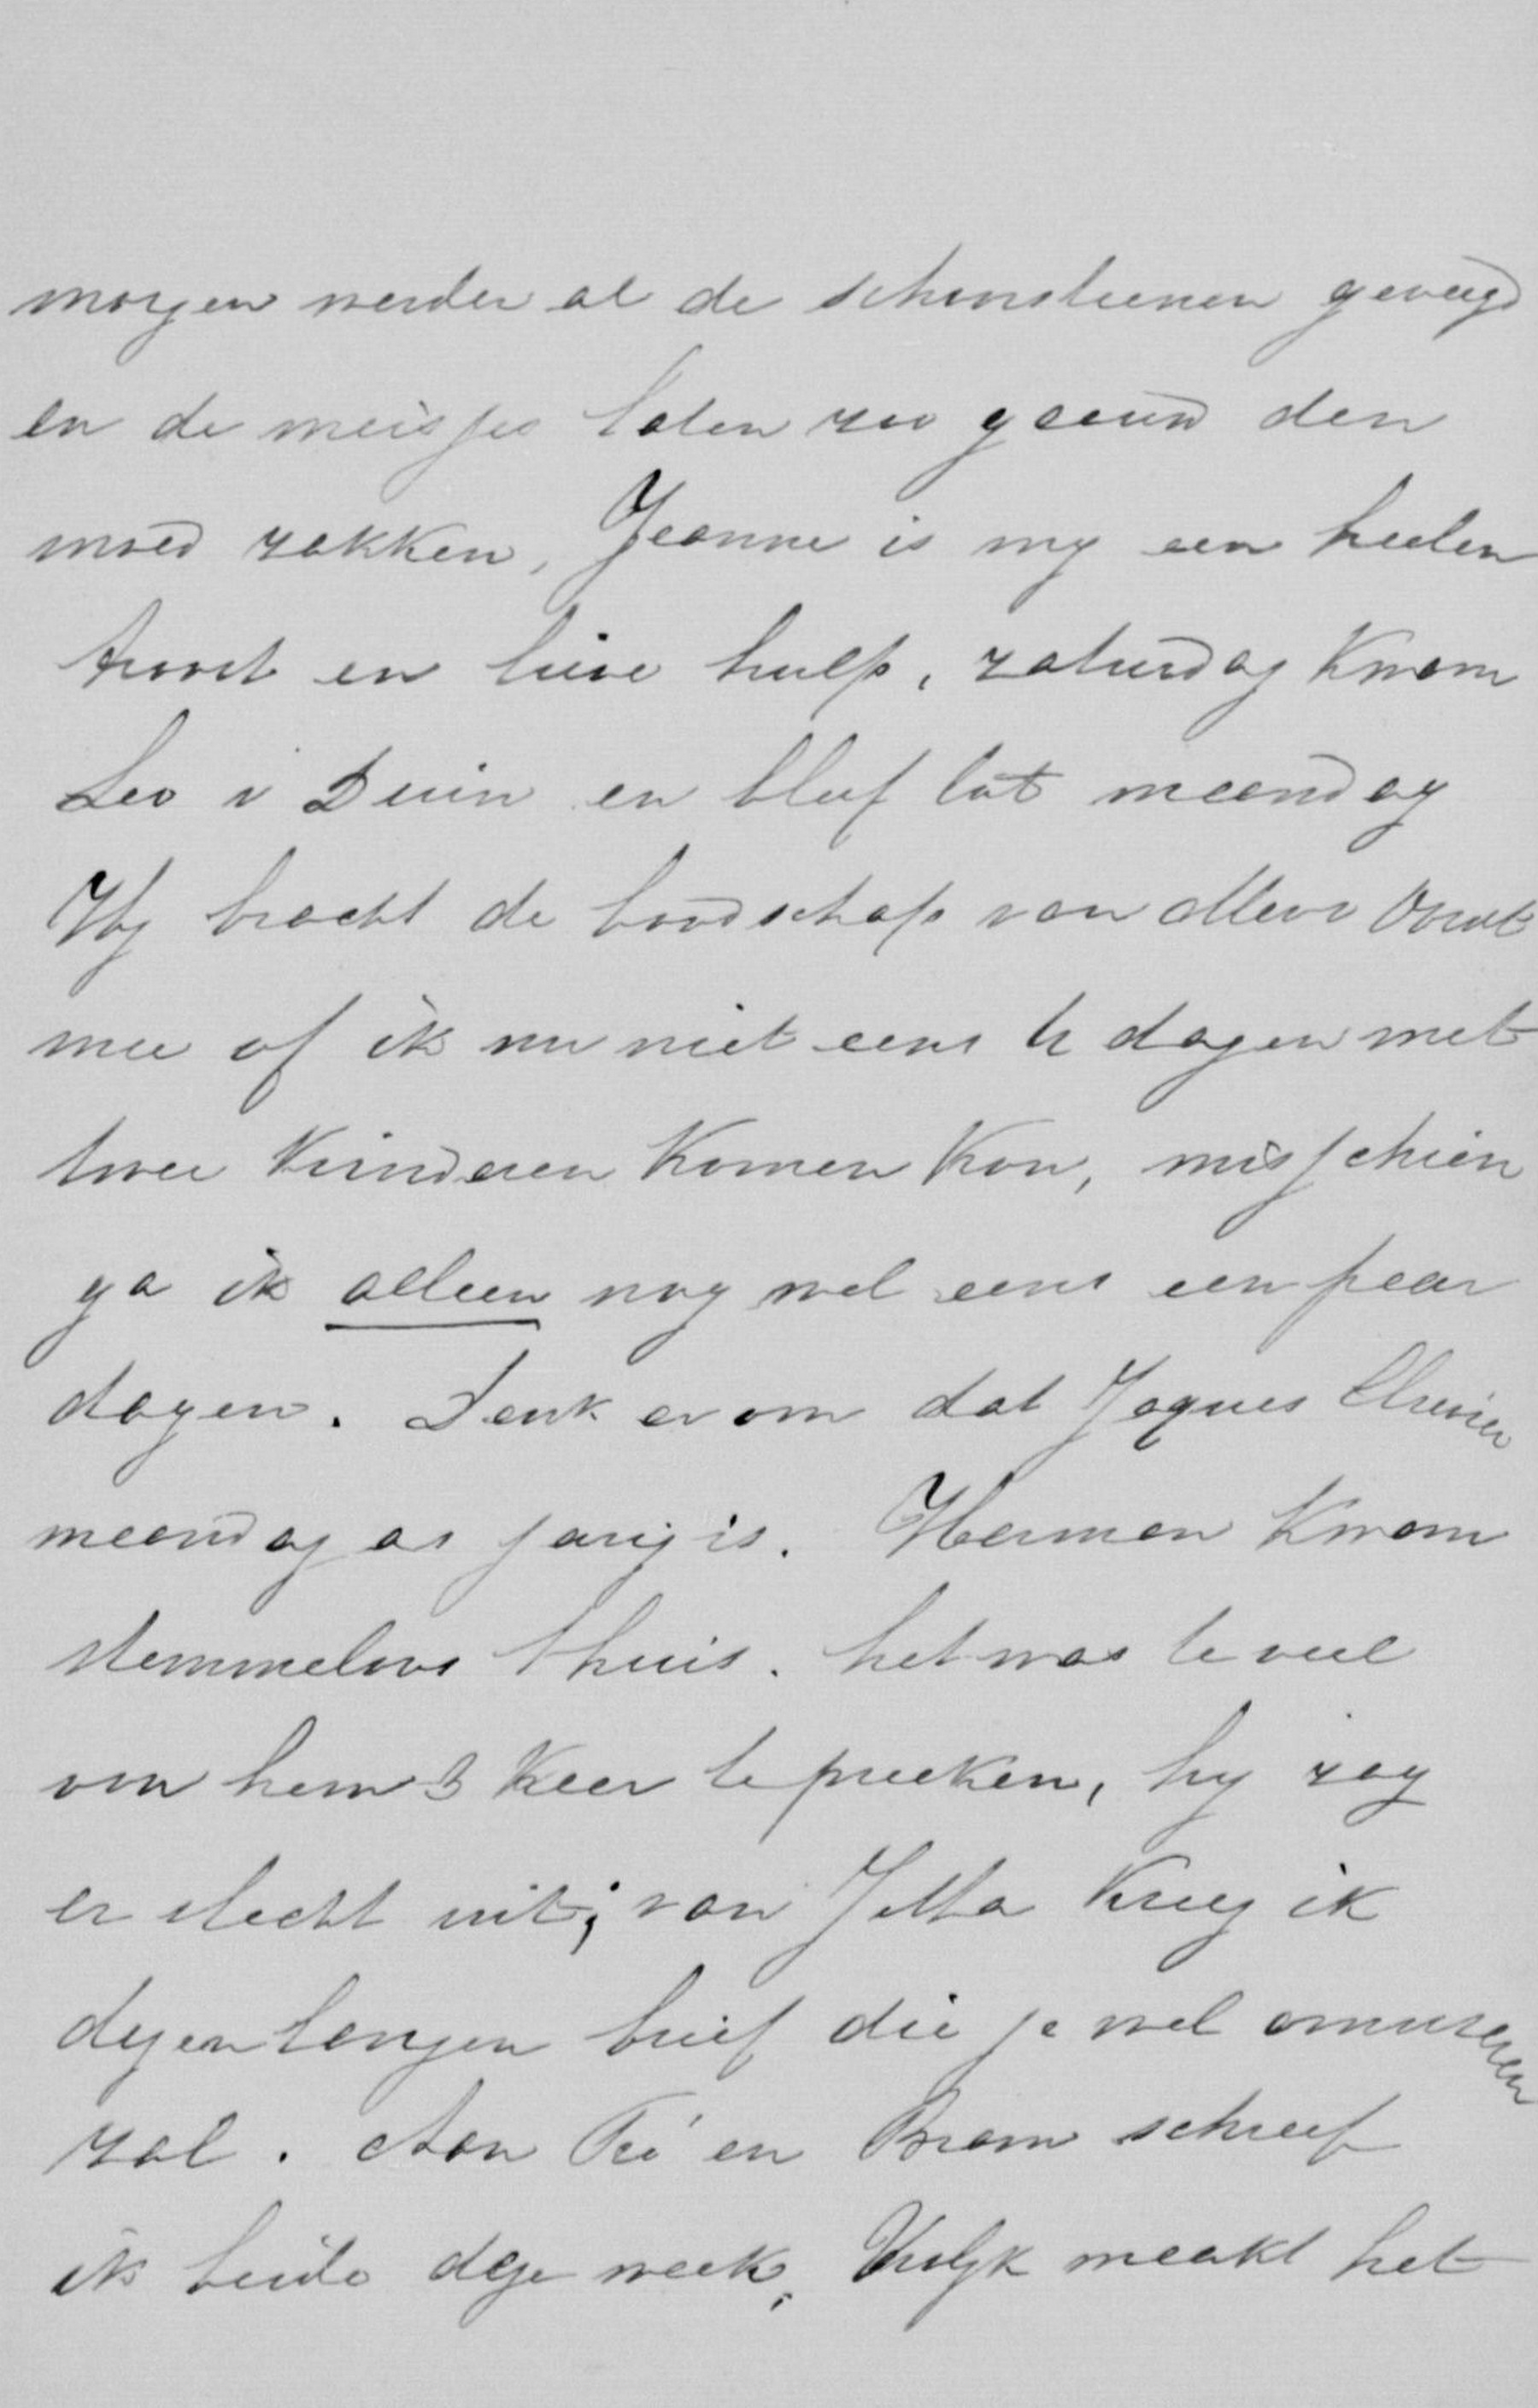 morgen werden al de schoorsteenen geveegd
en de meisjes laten zoo gaauw den
moed zakken, Jeanne is my een heelen
troost en lieve hulp, zaturdag kwam
Leo v Duin en bleef tot maandag
Hy bracht de boodschap van allen
mee of ik nu niet eens 14 dagen met
twee kinderen komen kon, misschien
ga ik alleen nog wel eens een paar
dagen. Denk er om dat Jaques
maandag as jarig is. Herman kwam
stemmeloos thuis. het was te veel
van hem 3 keer te preeken, hy zag
er slecht uit; van Jetta kreeg ik
dezen langen brief die je wel amuseren
zal. Aan en Bram schreef
ik beide deze week, maakt het